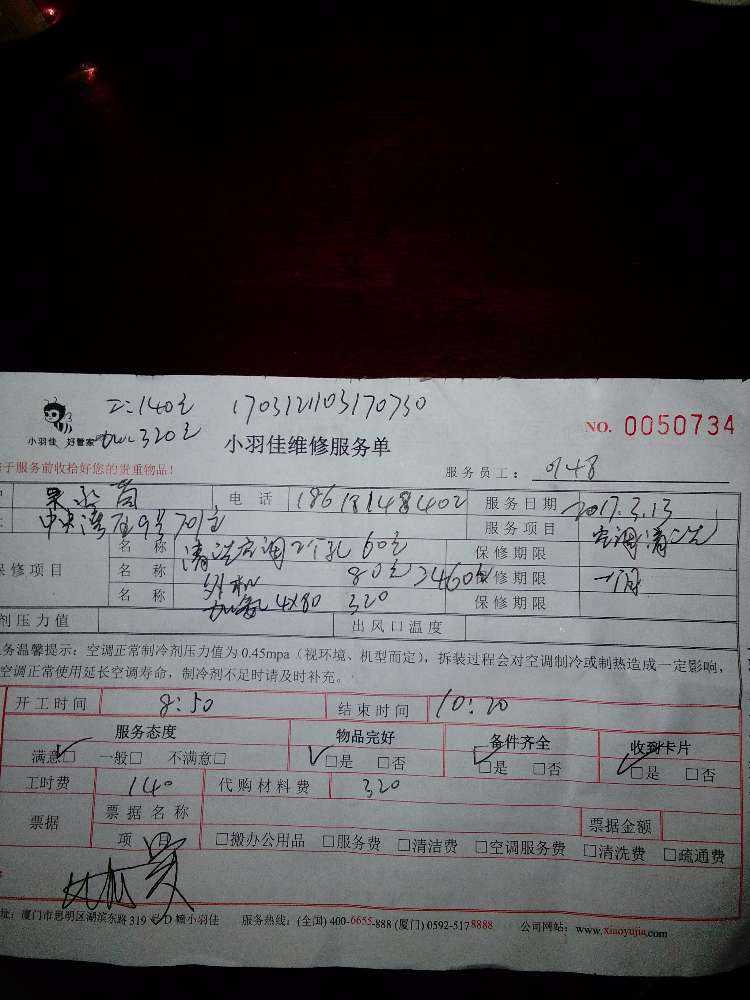 工:140元 1703121103170730
小羽佳 好管家 加:320元 小羽佳维修服务单 NO. 0050734
于服务前收拾好您的贵重物品! 服务员工: 0148
电话 18618148402 服务日期 2017.3.13
9号701室 服务项目 空调清洗
名称 清洗空调2个孔 60元 保修期限
保修项目 名称 外机 80元 460元 保修期限 一个月
名称 加氟 4X80 320 保修期限
剂压力值 出风口温度
务温馨提示:空调正常制冷剂压力值为0.45mpa(视环境、机型而定),拆装过程会对空调制冷或制热造成一定影响,
空调正常使用延长空调寿命,制冷剂不足时请及时补充。
开工时间 8:50 结束时间 10:20
服务态度 物品完好 备件齐全 收到卡片
满意□ 一般□ 不满意□ □是 □否 □是 □否 □是 □否
工时费 140 代购材料费 320
票据 票据名称 票据金额
项目 □搬办公用品 □服务费 □清洁费 □空调服务费 □清洗费 □疏通费
址:厦门市思明区湖滨东路319号D 嫂小羽佳 服务热线:(全国) 400-6655-888 (厦门) 0592-5178888 公司网站:www.xiaoyujia.com